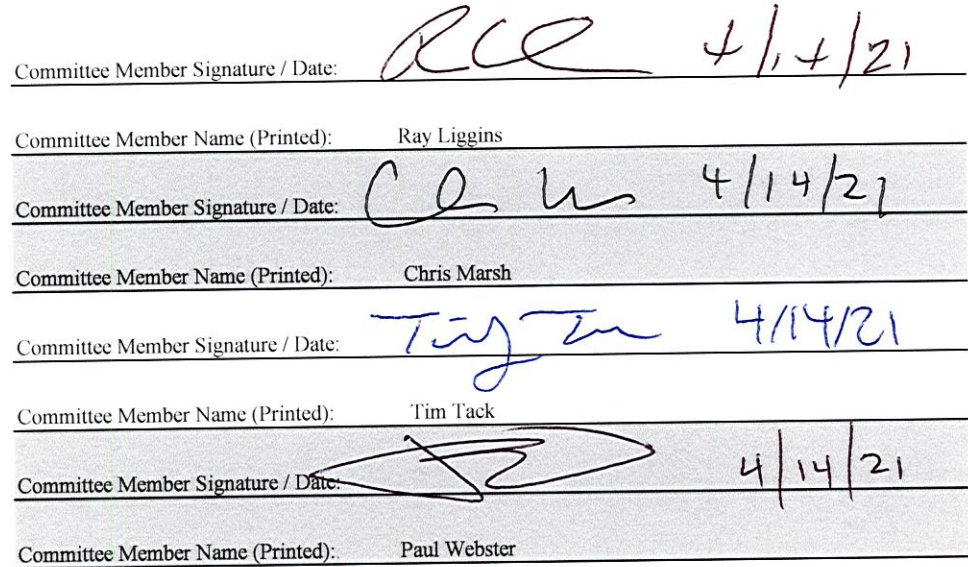 Committee Member Signature / Date: 4/14/21
Committee Member Name (Printed): Ray Liggins
Committee Member Signature / Date: 4/14/21
Committee Member Name (Printed): Chris Marsh
Committee Member Signature / Date: 4/14/21
Committee Member Name (Printed): Tim Tack
Committee Member Signature / Date: 4/14/21
Committee Member Name (Printed): Paul Webster